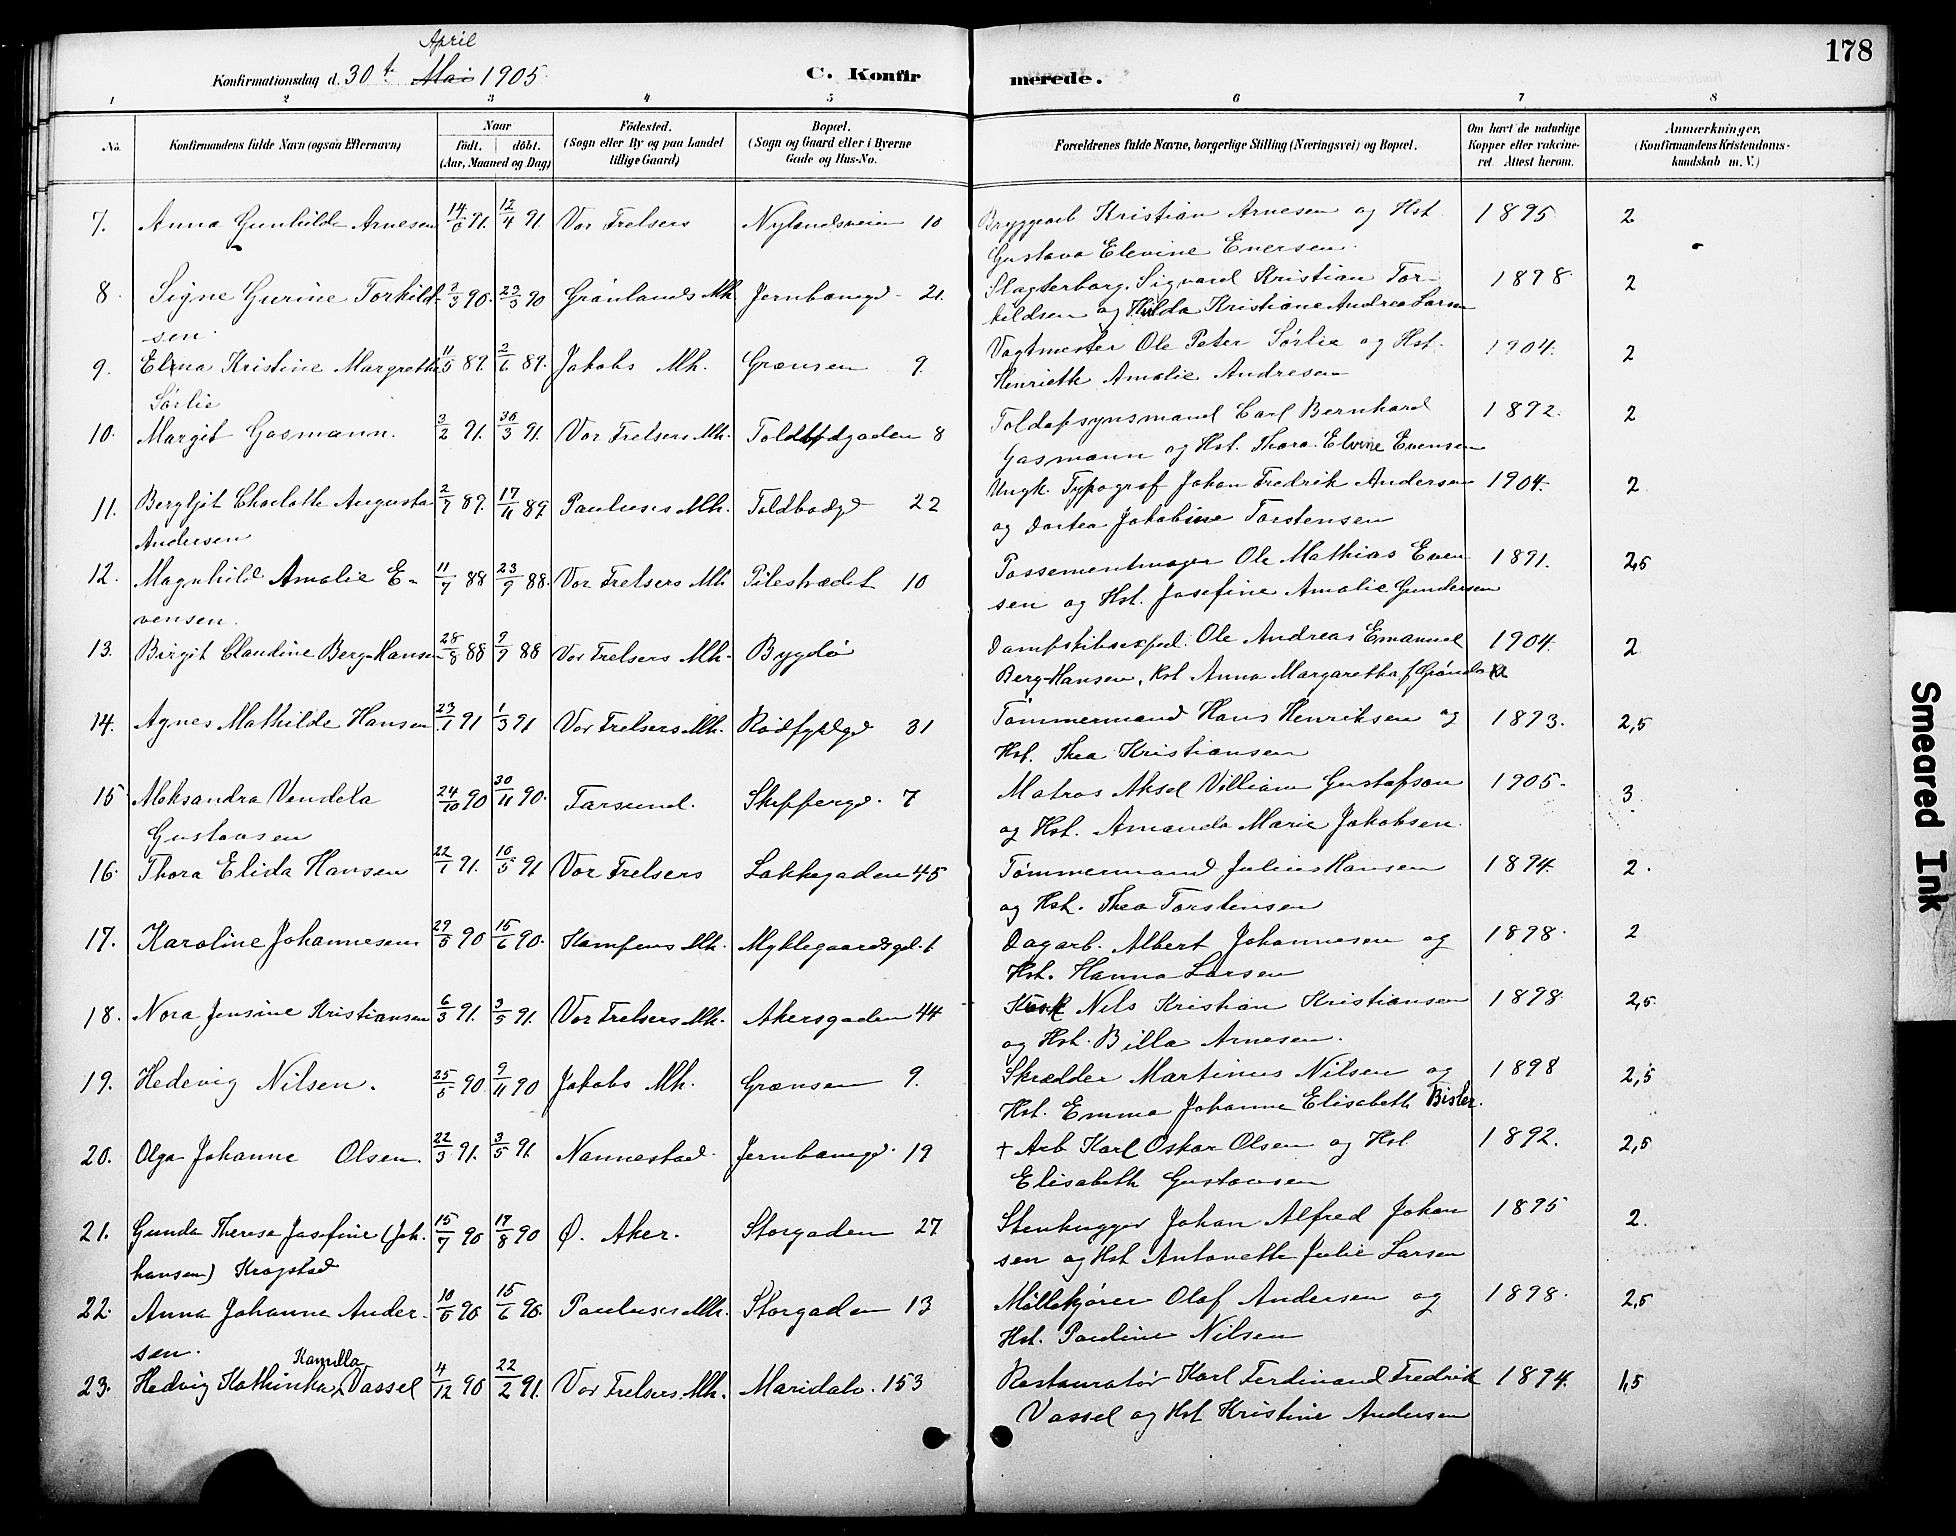 178
April
Konfirmationsdag d. 30t Mai 1905. C. Konfirmerede.
1 2 3 4 5 6 7 8
No. Konfirmandens fulde Navn (ogsaa Efternavn) Naar født. døbt. (Aar, Maaned og Dag) Fødested. (Sogn eller By og paa Landet tillige Gaard) Bopæl. (Sogn og Gaard eller i Byerne Gade og Hus-No. Forældrenes fulde Navne, borgerlige Stilling (Næringsvei) og Bopæl. Om havt de naturlige Kopper eller vakcineret. Attest herom. Anmærkninger. (Konfirmandens Kristendomskundskab m. V.)
7. Anna Gunhilde Arnesen 91. 12/4 91. Vor Frelsers Nylandsveien 10 Bryggearb Kristian Arnesen og Hst 1895 2
Gustava Elevine Evensen.
8. Signe Gurine Torkild- 2/3 90. 23/3 90 Grønlands Mh. Jernbanegd. 21. Slagterborg. Sigvard Kristian Tor- 1898 2
sen. kildsen og Hulda Kristiane Andrea Larsen
9. Elna Kristine Margrethe 11/5 89. 2/6 89. Jakobs Mh. Grænsen 9. Vagtmester Ole Peter Sørlie og Hst. 1904. 2
Sørlie Henriette Amalie Andresen
10. Margit Gasmann. 3/2 91. 30/3 91. Vor Frelsers Mh. Toldbodgaden 8 Toldopsynsmand Carl Bernhard 1892. 2
Gasmann og Hst. Thora Elvine Evensen
11. Bergljot Charlotte Augusta 2/7 89. 17/11 89. Paulus's Mh. Toldbodgd 22 Ungk. Typograf Johan Fredrik Andersen 1904. 2
Andersen og Dortea Jakobine Torstensen
12. Magnhild Amalie E- 11/7 88 23/9 88. Vor Frelsers Mh Pilestrædet 10 Possementmager Ole Mathias Even 1891. 2,5
vensen. sen og Hst. Josefine Amalie Gundersen
13. Birgit Claudine Berg-Hansen 28/8 88 9/9 88 Vor Frelsers Mh. Bygdø Dampskibsexped. Ole Andreas Emanuel 1904. 2
Berg-Hansen, Hst Anna Margaretha f
14. Agnes Mathilde Hansen 23/1 91 1/3 91 Vor Frelsers Mh. Rødfyldgd 31 Tømmermand Hans Henriksen og 1893. 2,5
Hst. Thea Kristiansen
15 Aleksandra Vendela 24/10 90 30/11 90. Farsund. Skippergd. 7 Matros Aksel Villiam Gustafson 1905. 3
Gustavsen og Hst. Amanda Marie Jakobsen.
16. Thora Elida Hansen 22/1 91. 10/5 91 Vor Frelsers Lakkegaden 45 Tømmermand Julius Hansen 1894. 2.
og Hst. Thea Torstensen
17. Karoline Johannesen 29/5 90 15/6 90. Kampens Mh. Myklegaardsgd. 1 Dagarb. Albert Johannesen og 1898. 2
Hst. Hanna Larsen
18. Nora Jensine Kristiansen 6/3 91. 3/5 91. Vor Frelsers Mh. Akersgaden 44 Kusk Nils Kristian Kristiansen 1898. 2,5
og Hst. Billa Arnesen.
19. Hedevig Nilsen. 25/5 90. 9/11 90 Jakobs Mh. Grænsen 9. Skrædder Martinus Nilsen og 1898 2,5
Hst. Emma Johanne Elisabeth Bisler.
20. Olga Johanne Olsen. 22/3 91. 3/5 91. Nannestad. Jernbanegd. 19 + Arb Karl Oskar Olsen og Hst 1892. 2,5
Elisabeth Gustavsen
21. Gunda Therese Josefine (Jo- 15/7 90 17/8 90 Ø. Aker. Storgaden 27 Stenhugger Johan Alfred Johan 1895 2.
hansen) Krogstad sen og Hst Antonette Julie Larsen
22. Anna Johanne Ander- 10/5 90 15/6 90. Paulus's Mh. Storgaden 13 Møllekjører Olaf Andersen og 1898. 2,5
sen. Hst. Pauline Nilsen
Kamilla
23. Hedvig Kathinka Vassel 4/12 90 22/2 91. Vor Frelsers Mh. Maridalv. 153 Restauratør Karl Ferdinand Fredrik 1894. 1,5
Vassel og Hst Kristine Andersen
Smeared Ink